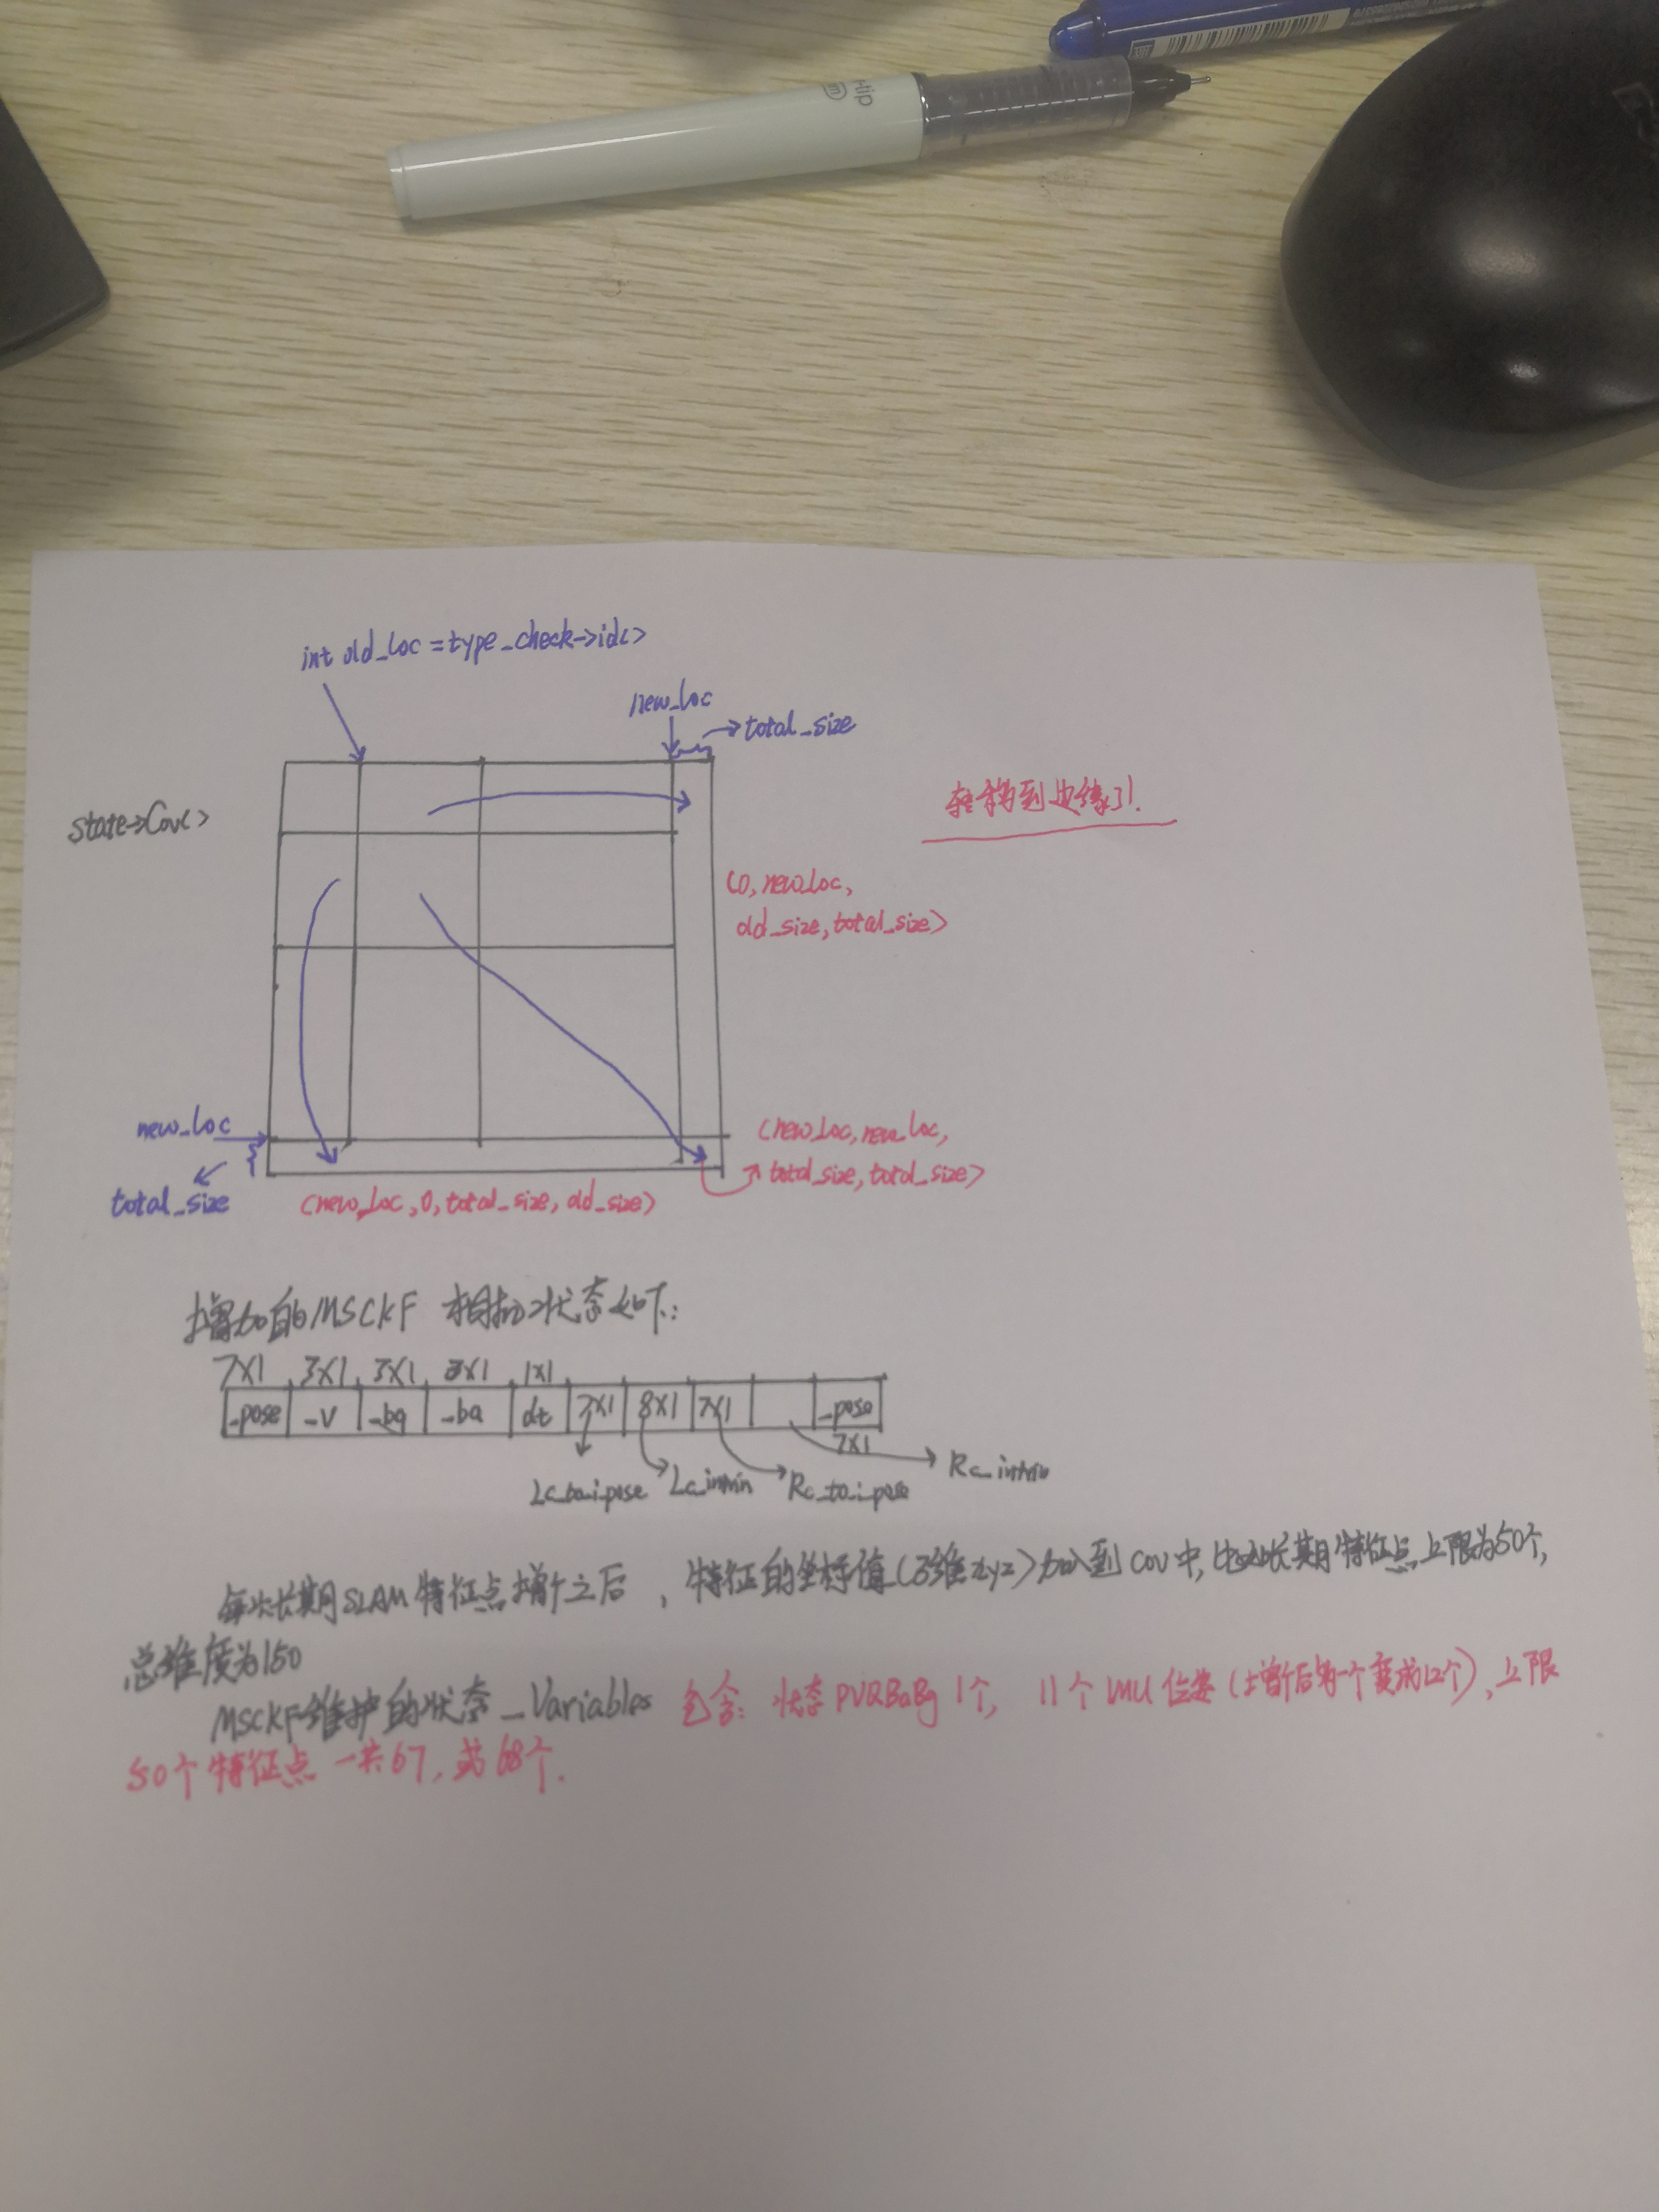 int old_loc = type_check->id()
new_loc
total_size
state->Cov()
转移到边缘了!
(0, new_loc,
old_size, total_size)
new_loc
total_size
(new_loc, new_loc,
total_size, total_size)
(new_loc, 0, total_size, old_size)
增加的MSCKF 相机状态如下:
7X1 3X1 3X1 3X1 1X1
_pose _v _bg _ba dt 7X1 8X1 7X1 _pose
7X1
Lc_to_i_pose Lc_intrin Rc_to_i_pose
每次长期SLAM特征点增广之后, 特征的坐标值(3维xyz)加入到cov中, 长期特征点上限为50个,
总维度为150
MSCKF维护的状态_Variables 包含: 状态PVQBaBg 1个, 11个IMU位姿(增广后 一个变成12个), 上限
50个特征点 一共67, 或68个.